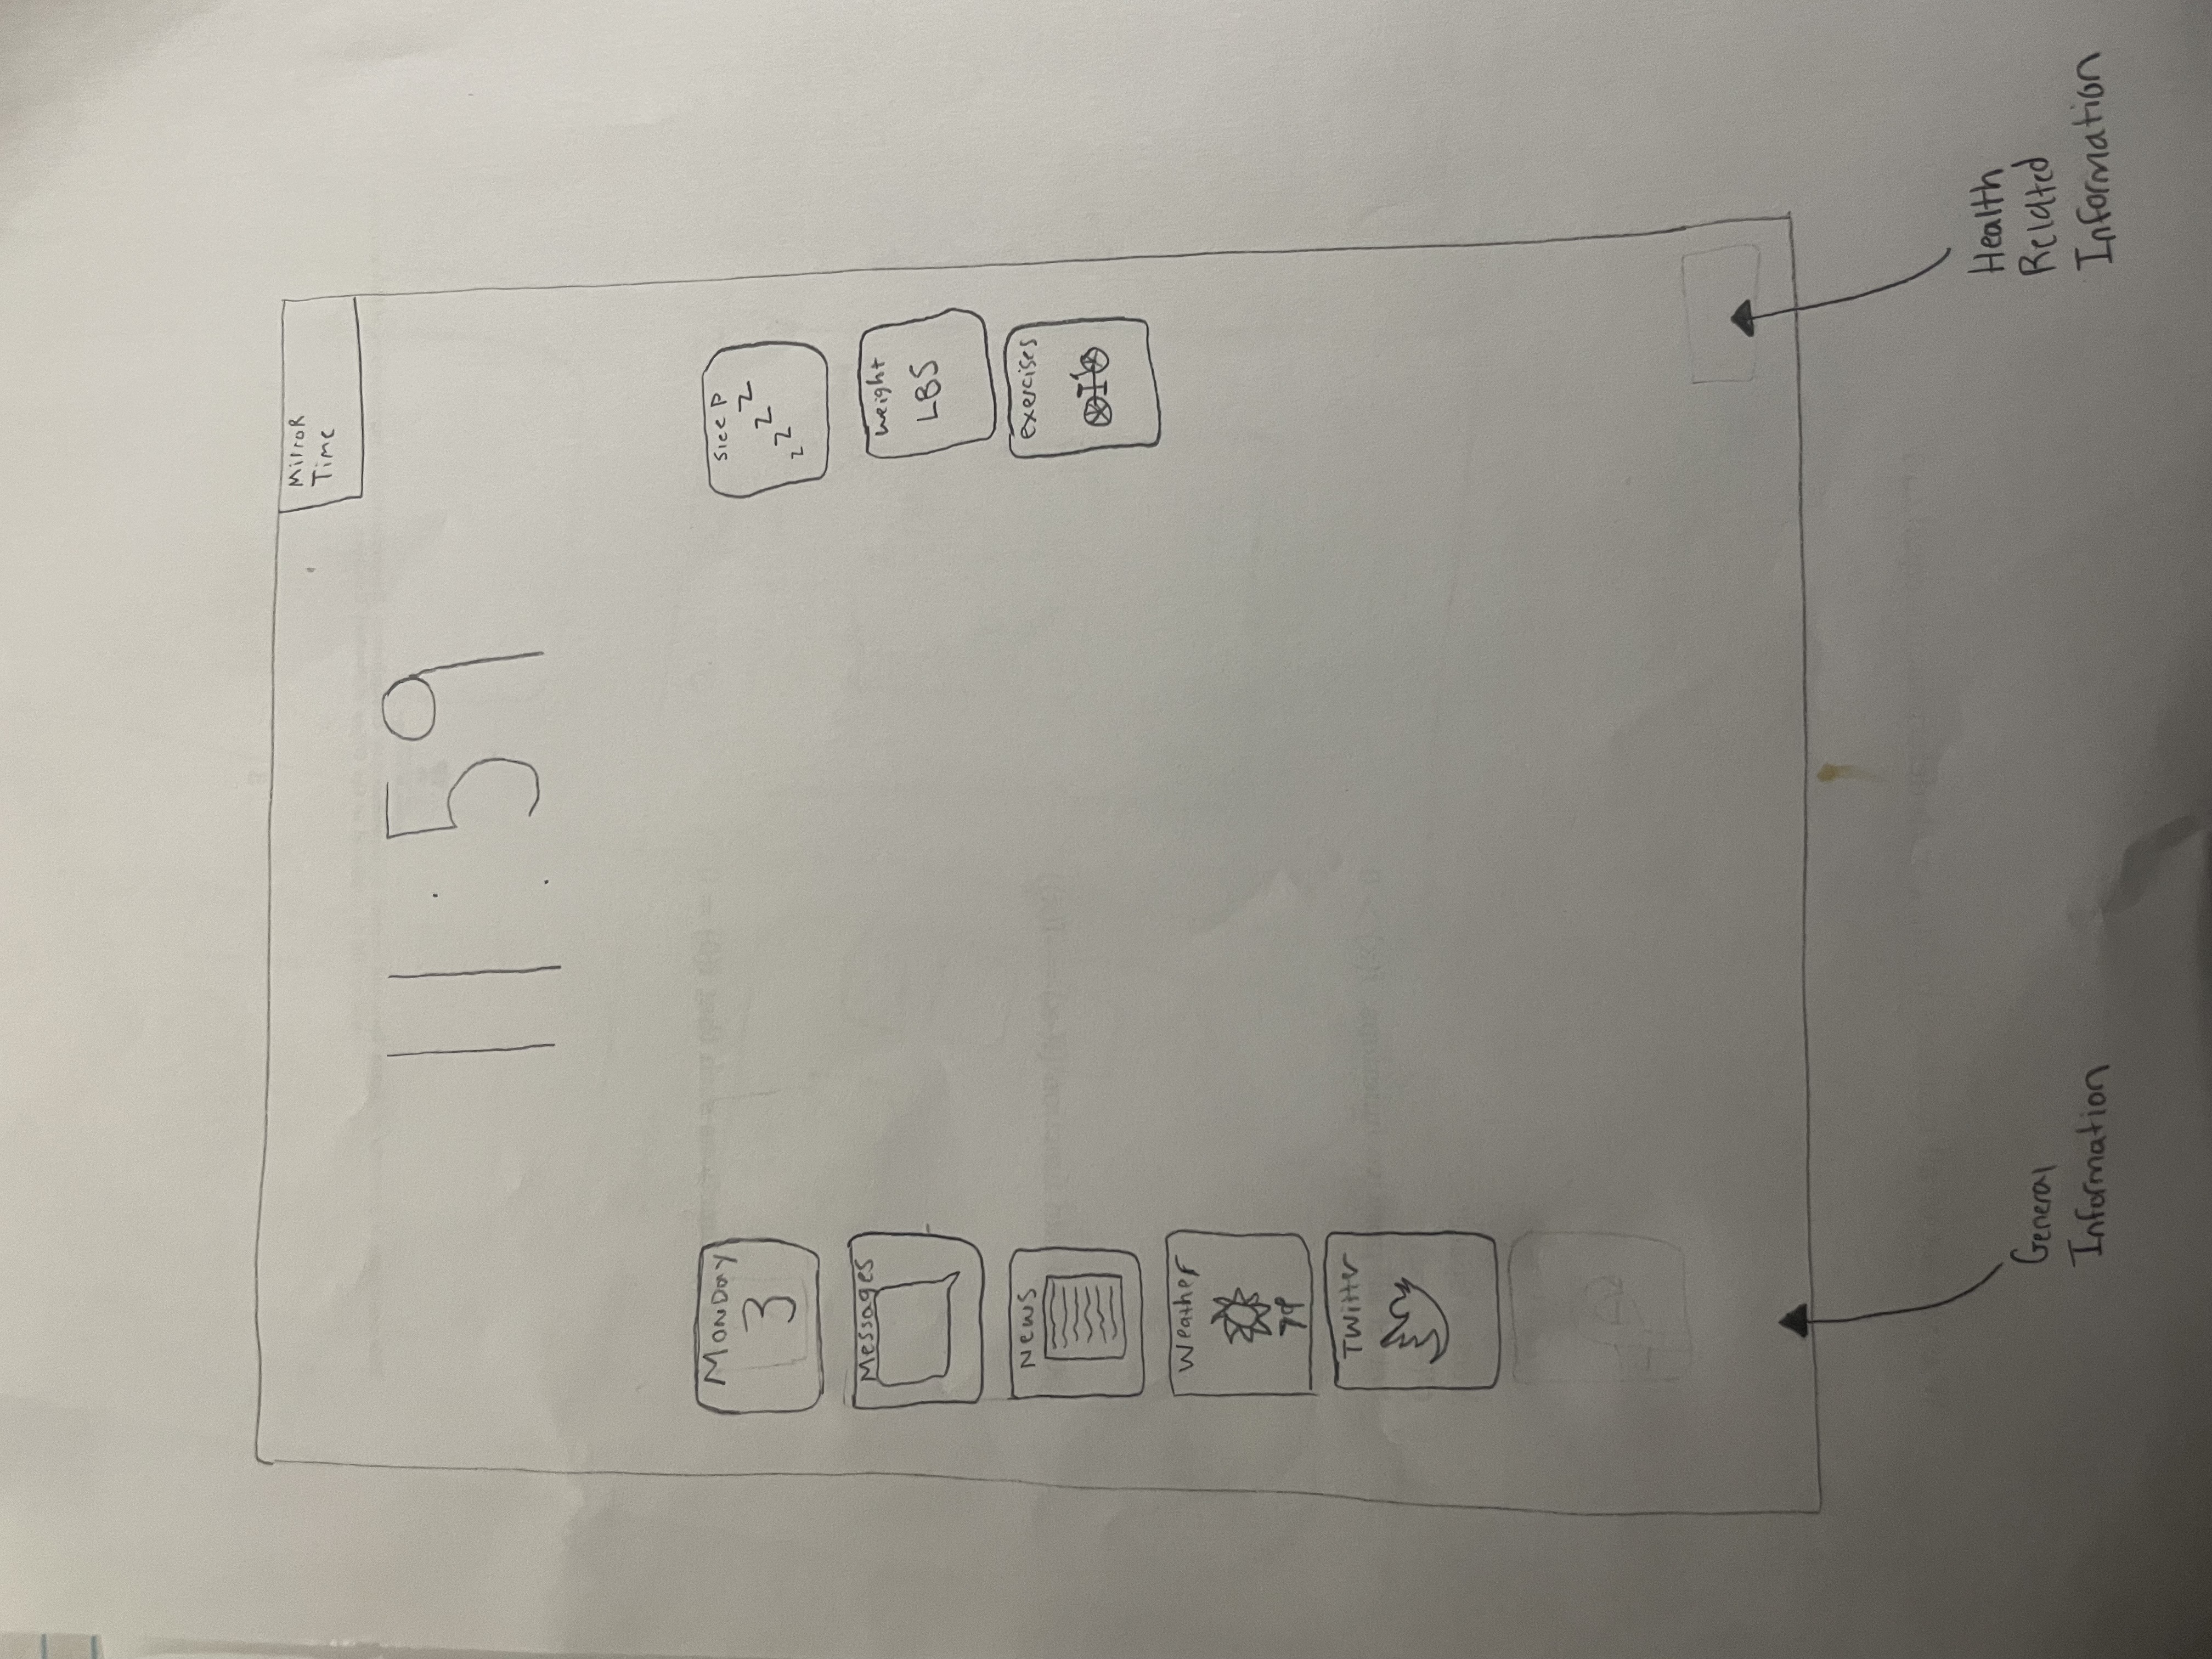 Mirror
Time
11:59
Monday
3
Messages
News
Weather
Twitter
Sleep
z z z z
Weight
LBS
exercises
General
Information
Health
Related
Information